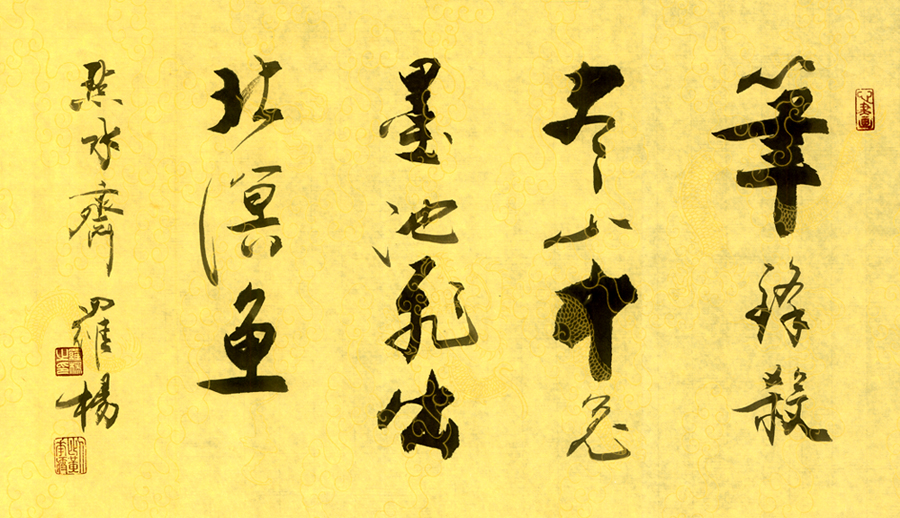 筆鋒殺
尽山中兔
墨池飛出
北溟鱼
點水齋 羅楊